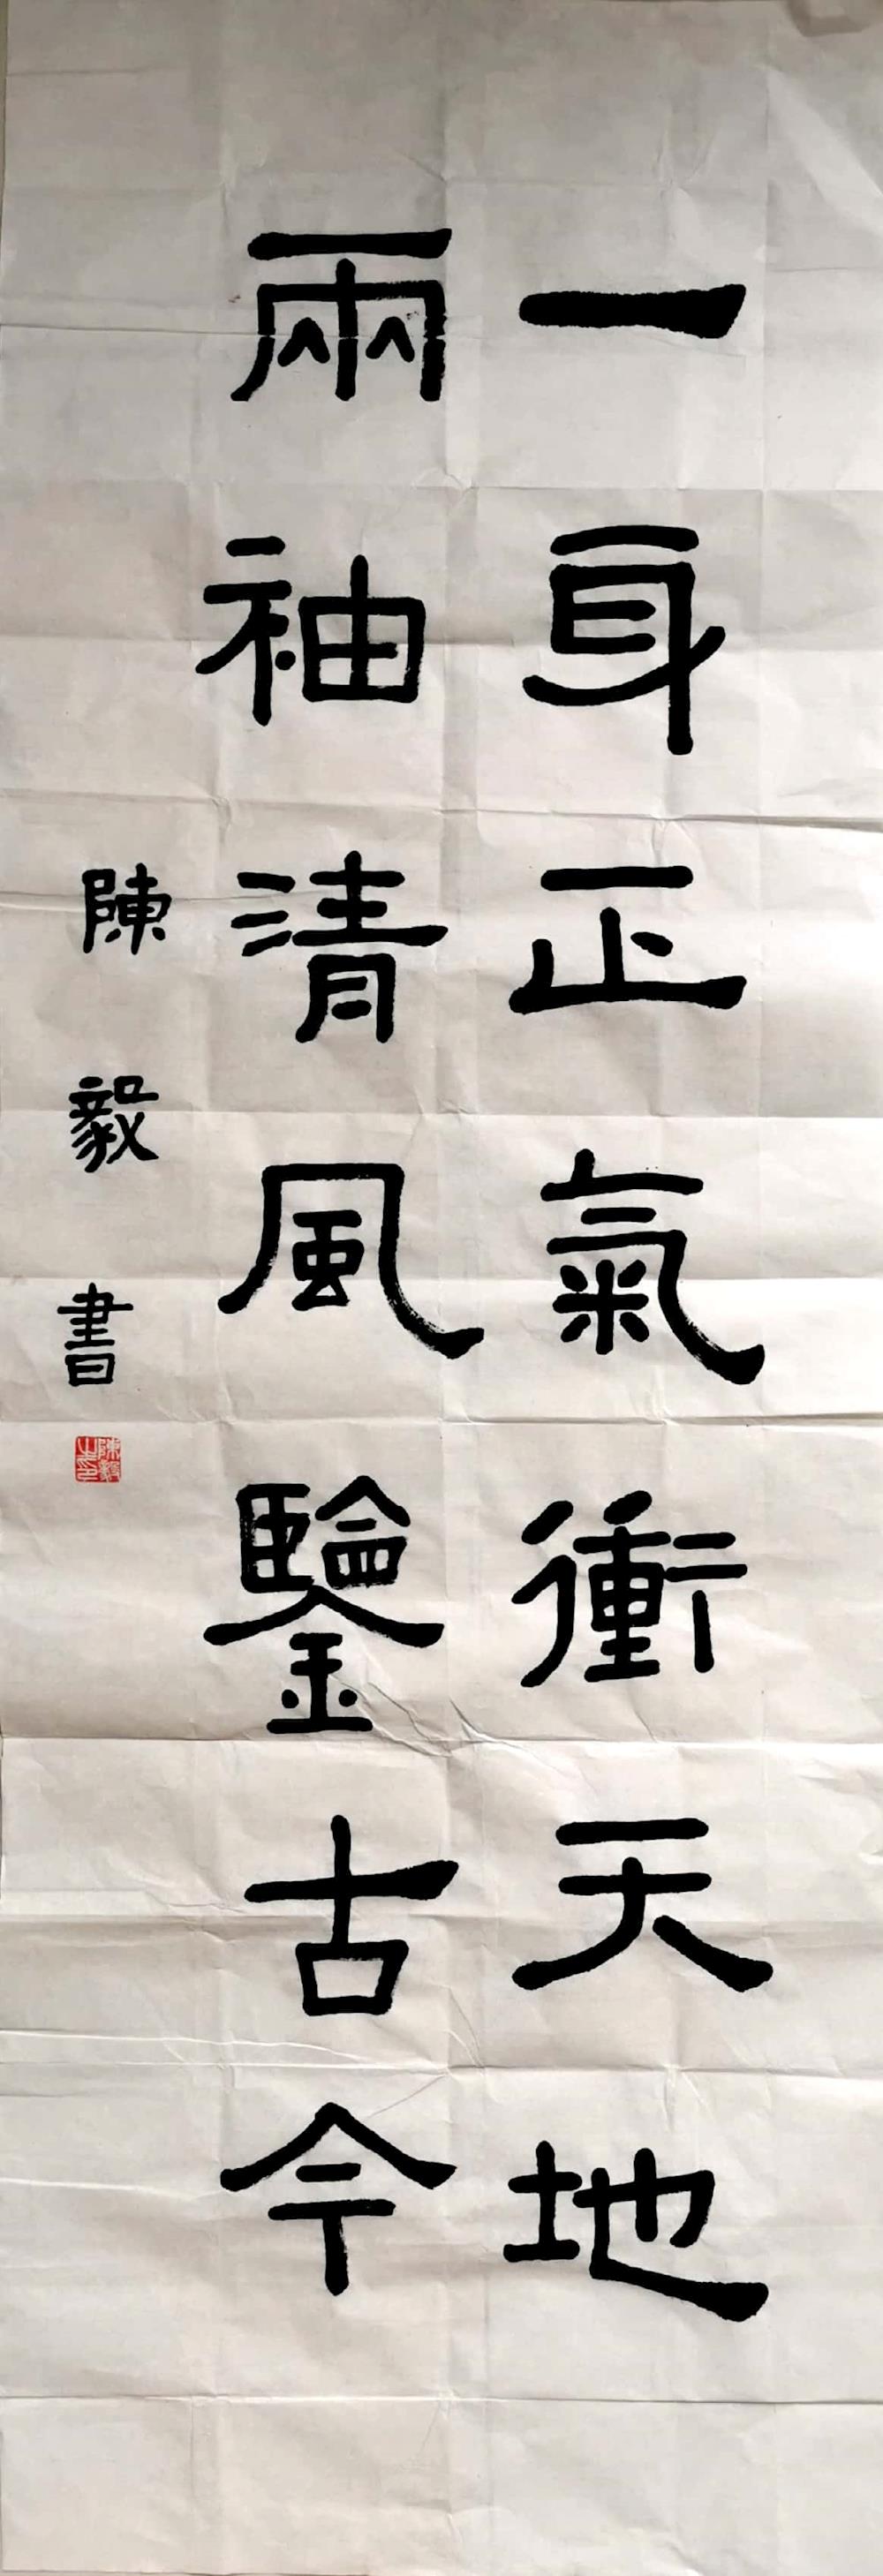 一身正氣衝天地
兩袖清風鑒古今
陳毅書
陳毅之印